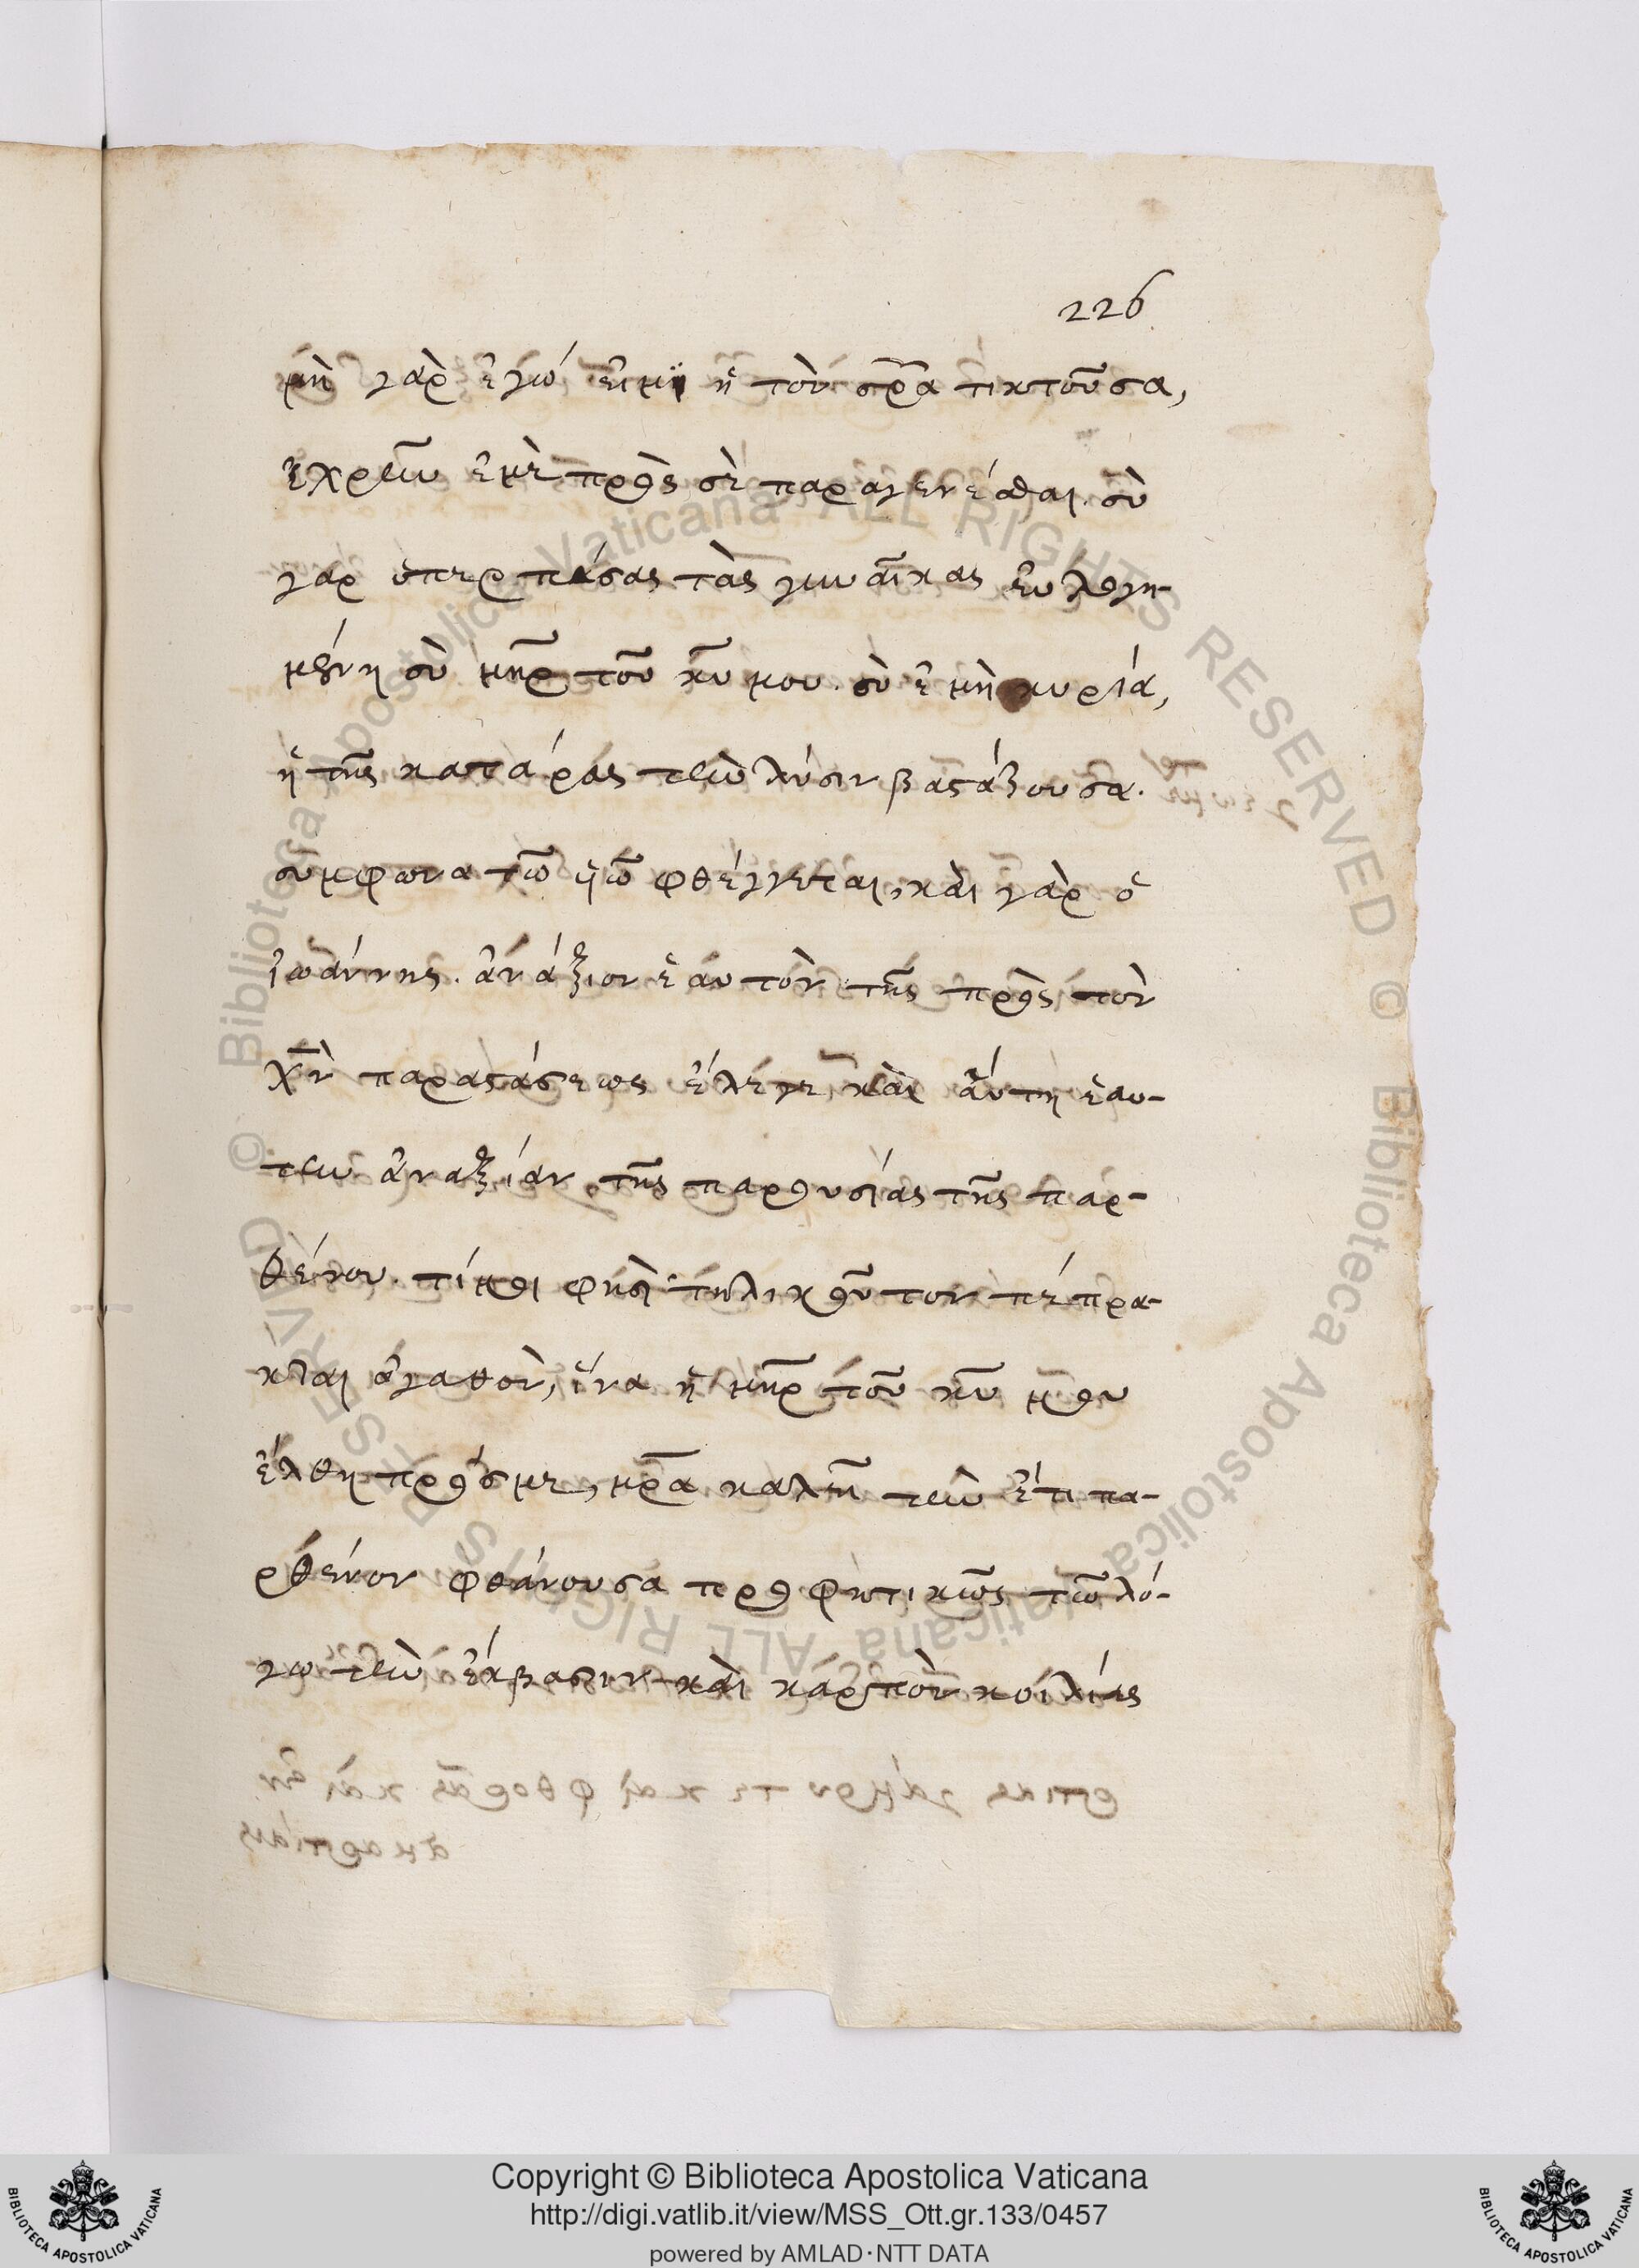 226
μὴ γὰρ ἐγώ εἰμι ἡ τὸν σρ̅α τικτοῦσα,
ἐχρῆν ἐμὲ πρὸς σὲ παραγενέσθαι. σὺ
γὰρ ὑπερ πάσας τὰς γυναῖκας εὐλογη-
μένη σὺ μηρ̅ τοῦ κ̅υ μου. σὺ ἐμὴ κυρία,
ἡ τῆς κατάρας τὴν λύσιν βαστάζουσα.
σύμφωνα τῶ ϋἱῶ φθέγγεται, καὶ γὰρ ὁ
ἰωάννης. ἀνάξιον ἑαυτὸν τῆς πρὸς τὸν
χ̅ν παραστάσεως ἔλεγε, καὶ αὕτη ἑαυ-
τὴν ἀναξίαν τῆς παρουσίας τῆς παρ-
θένου. τί μοι φησὶ τηλικοῦτον πέπρα-
κται ἀγαθὸν, ἵνα ἡ μηρ̅ τοῦ κ̅υ μου
ἔλθη πρὸς με, μρ̅α καλεῖ τὴν ἔτι πα-
ρθένον φθάνουσα προφητικῶς τῶ λό-
γω τὴν ἔκβασιν. καὶ κάρπὸν κοιλίας
Copyright © Biblioteca Apostolica Vaticana
http://digi.vatlib.it/view/MSS_Ott.gr.133/0457
powered by AMLAD·NTT DATA
BIBLIOTECA APOSTOLICA VATICANA
BIBLIOTECA APOSTOLICA VATICANA
© Biblioteca Apostolica Vaticana ALL RIGHTS RESERVED
© Biblioteca Apostolica Vaticana ALL RIGHTS RESERVED